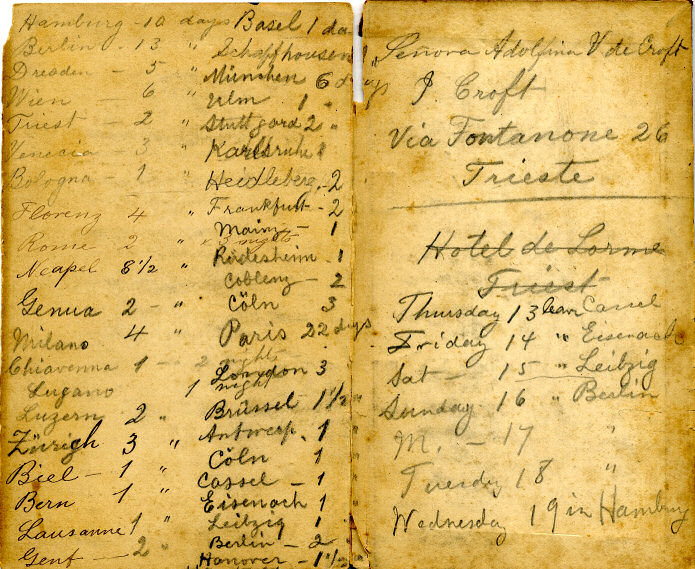 Hamburg - 10 days
Berlin - 13 "
Dresden - 5 "
Wien - 6 "
Triest - 2 "
Venecia 3 "
Bologna - 1 "
Florenz 4 "
Rome 2 " nights
Neapel 8 1/2 "
Genua 2 - "
Milano 4 "
Chiavenna 1 - 2 nights
Lugano 1 night
Luzern 2 "
Zürigh 3 "
Biel - 1 "
Bern 1 "
Lausanne 1 "
Genf - 2 "
Basel 1 da
Schaffhousen 1
München 6 d
Ulm 1 "
Stuttgard 2 "
Karlsruhe 1
Heidleberg - 2
Frankfurt - 2
Mainz - 1
Rüdesheim 1
Coblenz - 2
Cöln 3
Paris 22 days
London 3
Brüssel 1 1/2 "
Antwerp. 1 "
Cöln 1 "
Cassel - 1 "
Eisenach 1 "
Leibzig 1 "
Berlin - 2 "
Hanover - 1 1/2
Senora Adolfina V de Croft
J Croft
Via Fontanone 26
Trieste
Hotel de Lorme
Triest
Thursday 13 leave Cassel
Friday 14 " Eisenach
Sat - 15 " Leibzig
Sunday 16 " Berlin
M. - 17 "
Tuesday 18 "
Wednesday 19 in Hamburg